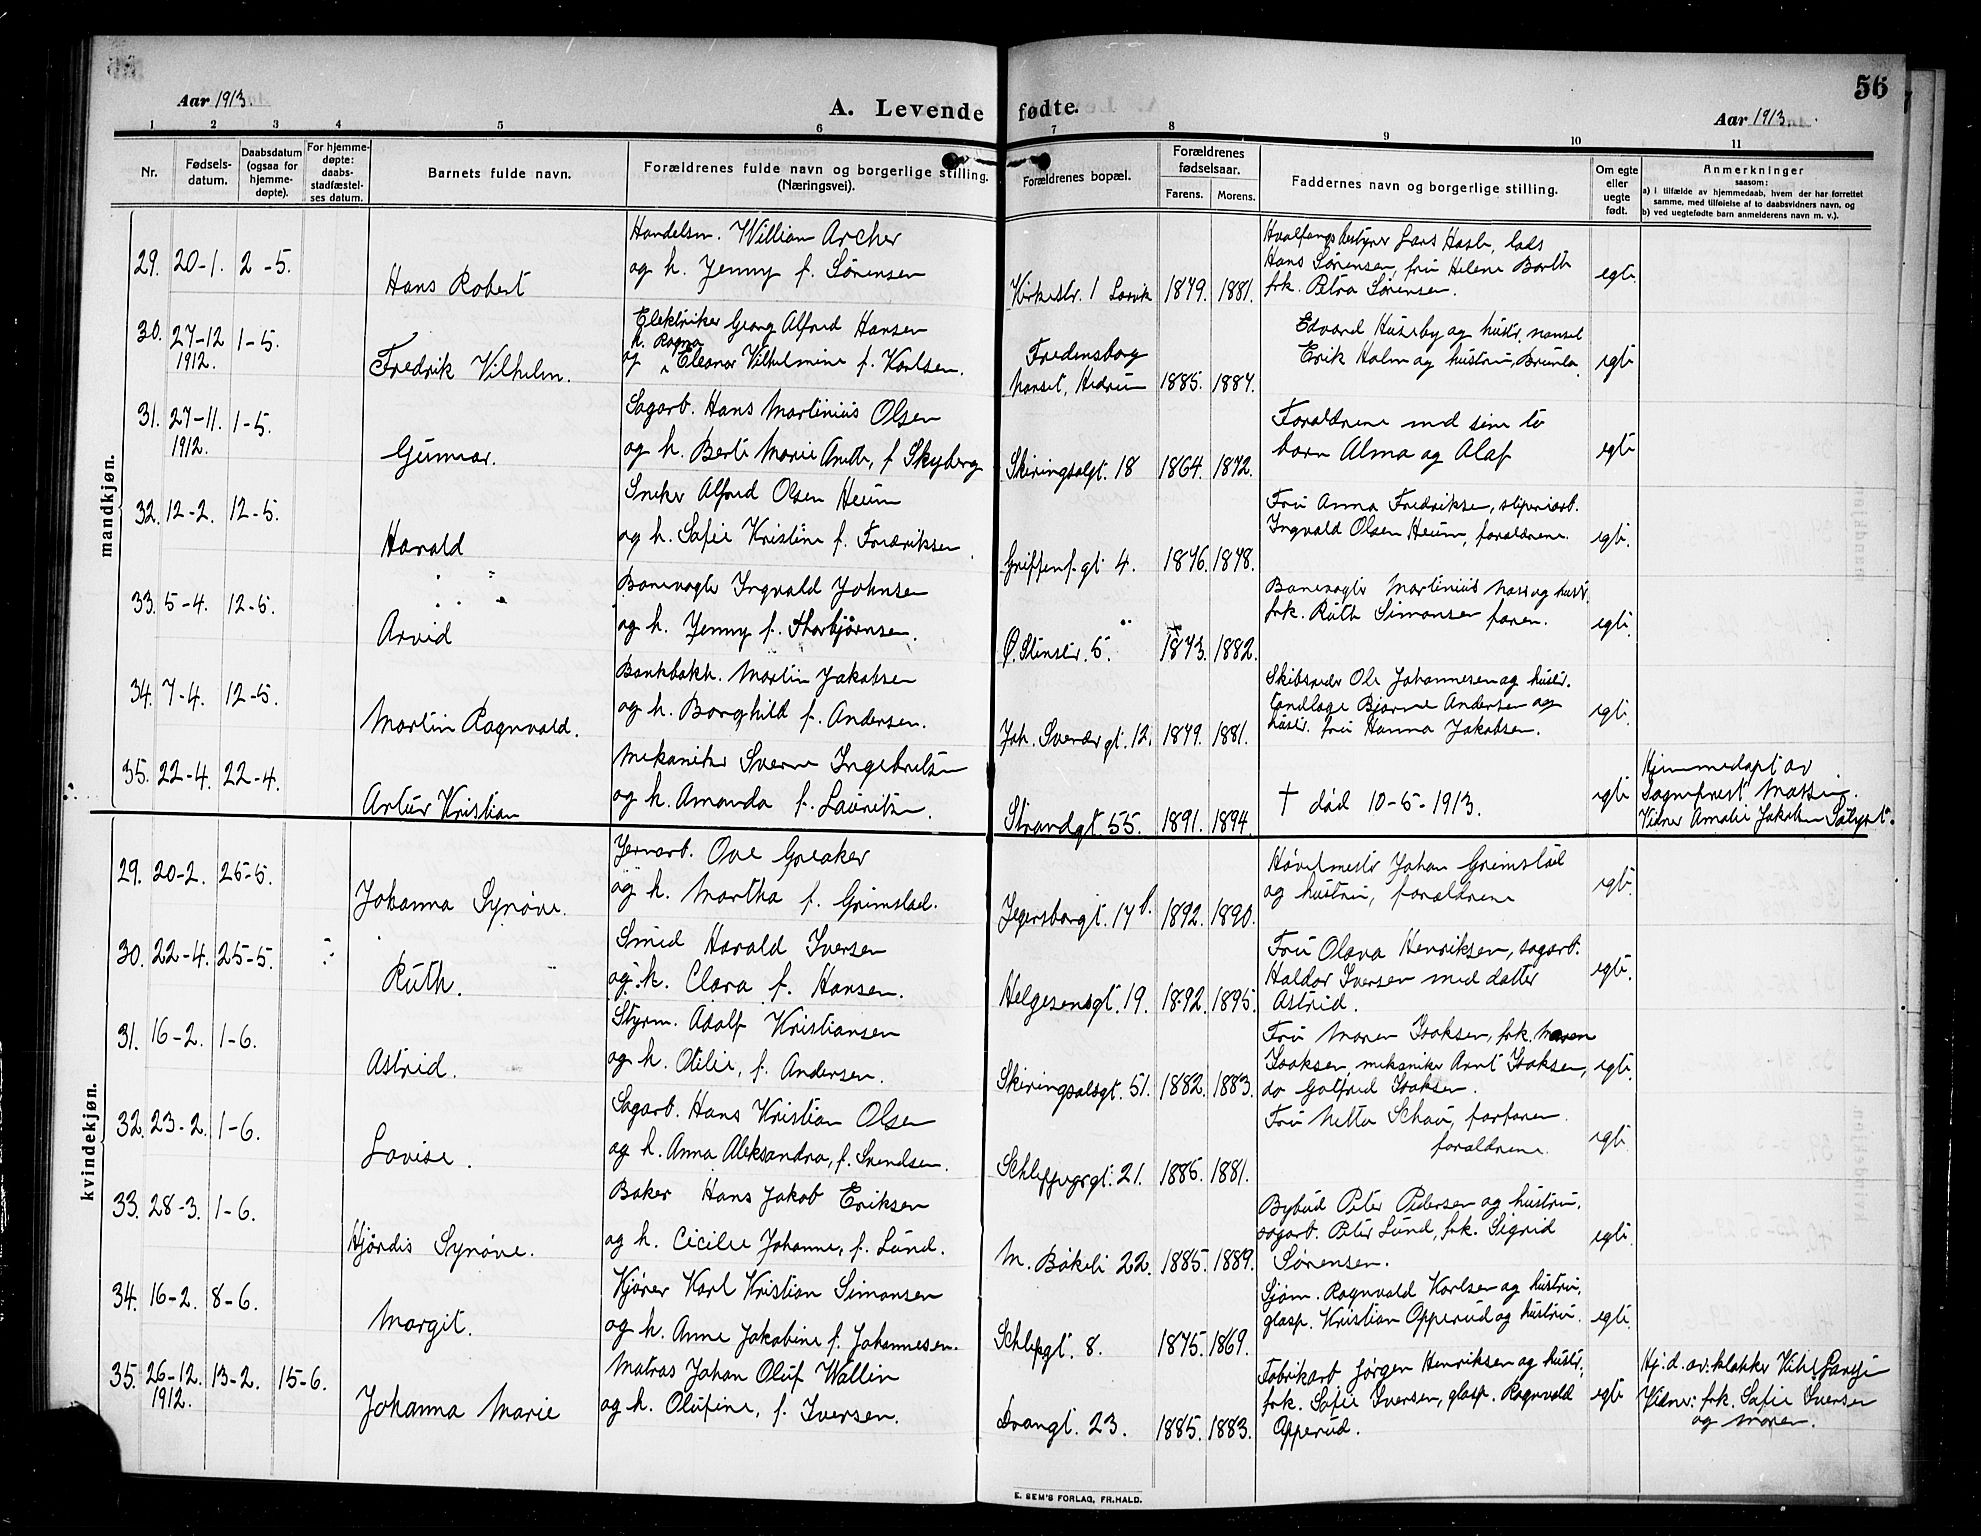 56
Aar 1913.
A. Levende fødte.
Aar 1913
1 2 3 4 5 6 7 8 9 10 11
Nr.
Fødsels-datum.
Daabsdatum (ogsaa for hjemme-døpte).
For hjemme-døpte: daabs-stadfæstel-ses datum.
Barnets fulde navn.
Forældrenes fulde navn og borgerlige stilling.
(Næringsvei).
Forældrenes bopæl.
Forældrenes fødselsaar.
Farens. Morens.
Faddernes navn og borgerlige stilling.
Om egte eller uegte født.
Anmerkninger
saasom:
a) i tilfælde av hjemmedaab, hvem der har forrettet
samme, med tilføielse af to daabsvidners navn, og
b) ved uegtefødte barn anmelderens navn m. v.).
mandkjøn.
29. 20-1. 2-5.
Hans Robert
Handelsm. William Archer
og h. Jenny f. Sørensen
Kirkestr. 1 Larvik 1879. 1881.
Hvalfangstbestyrer Lars
Hans Sørensen, fru Helene
frk. Petra Sørensen.
egte
30. 27-12 1912. 1-5.
Fredrik Vilhelm.
Elektriker Georg Alfred Hansen
og h. Ragna Eleonor Vilhelmine f. Karlsen.
Fredensborg
Nanset, Hedrum 1885. 1887.
Edvard Huseby og hustr. nanset
Erik Holm og hustru, Brunla.
egte
31. 27-11. 1912. 1-5.
Gunnar.
Sagarb. Hans Martinius Olsen
og h. Berte Marie Anette, f Skyberg
Skiringsalgt. 18 1864. 1872.
Forældrene med sine to
barn Alma og Olaf
egte
32. 12-2. 12-5.
Harald
Sneker Alfred Olsen Heum
og h. Sofie Kristine f. Fredriksen.
Griffenf.gt 4. 1876. 1878.
Fru Anna Fredriksen, sliperiarb.
Ingvald Olsen Heum, forældrene.
egte.
33. 5-4. 12-5.
Arvid
Banevogte Ingvald Johnsen
og h. Jenny f. Thorbjørnsen.
Ø. Stenstr. 5. 1873. 1882.
Banevogte Martinius Næss og hustr.
frk. Ruth Simonsen faren.
egte.
34. 7-4. 12-5.
Martin Ragnvald.
Bankbokh. Martin Jakobsen
og h. Borghild f. Andersen.
Joh. Sverdr.gt. 12. 1879. 1881.
Skibsreder Ole Johannesen og hustr.
tandlæge Bjarne Andersen og
hustr. fru Hanna Jakobsen.
egte.
35. 22-4. 22-4.
Artur Kristian
Mekaniker Sverre Ingebretsen
og h. Amanda f. Lauritsen.
Strandgt 55. 1891. 1894.
† død 10-5-1913.
egte
Hjemmedøpt av
Sogneprest
Vidner Amalie Jakobsen
kvindekjøn.
29. 20-2. 25-5.
Johanna Synøve.
Jernarb. Ove Greaker
og h. Martha f. Grimstad.
Jegersborgt. 14 b. 1892. 1890.
Høvelmestr Johan Grimstad
og hustru, forældrene
egte.
30. 22-4. 25-5.
Ruth.
Smed Harald Iversen
og h. Clara f. Hansen.
Helgesensgt. 19. 1892. 1895.
Fru Olava Henriksen, sagarb.
Haldor Iversen med datter
Astrid.
egte.
31. 16-2. 1-6.
Astrid.
Styrm. Adolf Kristiansen
og h. Otilie, f. Andersen.
Skiringsalsgt. 51. 1882. 1883.
Fru Maren Isaksen, frk. Maren
Isaksen, mekaniker Arnt Isaksen,
do Gotfred Isaksen.
egte.
32. 23-2. 1-6.
Lovise.
Sagarb. Hans Kristian Olsen
og h. Anna Aleksandra, f. Svendsen.
21. 1885. 1881.
Fru Netta Schau, farfaren
forældrene.
egte.
33. 28-3. 1-6.
Hjørdis Synøve.
Baker Hans Jakob Eriksen
og h. Cicilie Johanne, f. Lund.
M. Bökeli 22. 1885. 1889.
Bybud Peter Pedersen og hustru,
sagarb. Peter Lund, frk. Sigrid
Sørensen.
egte.
34. 16-2. 8-6.
Margit.
Kjører Karl Kristian Simonsen
og h. Anne Jakobine f. Johannesen.
Schlepgt. 8. 1875. 1869.
Sjøm. Ragnvald Karlsen og hustru,
glasp. Kristian Opperud og hustru.
egte.
35. 26-12. 1912. 13-2. 15-6.
Johanna Marie
Matros Johan Oluf Wallin
og h. Olufine, f. Iversen.
Trangt. 23. 1885. 1883.
Fabrikarb Jørgen Henriksen og hustr.
frk. Sofie Iversen, glasp. Ragnvald
Opperud.
egte
Hj. d. av: klokker
Vidner: frk. Sofie Iversen
og moren.
E. SEM'S FORLAG, FR.HALD.